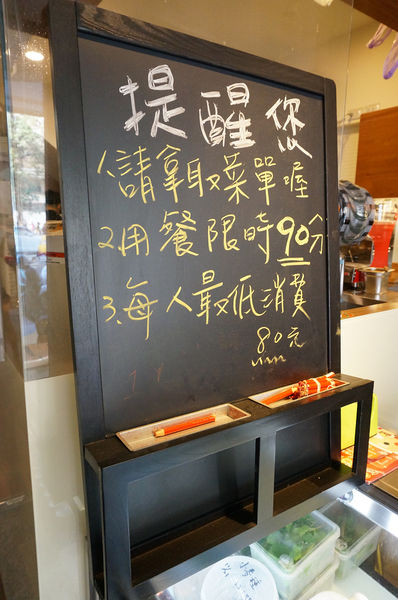 提醒您
1.請拿取菜單喔
2.用餐限時90分
3.每人最低消費
80元